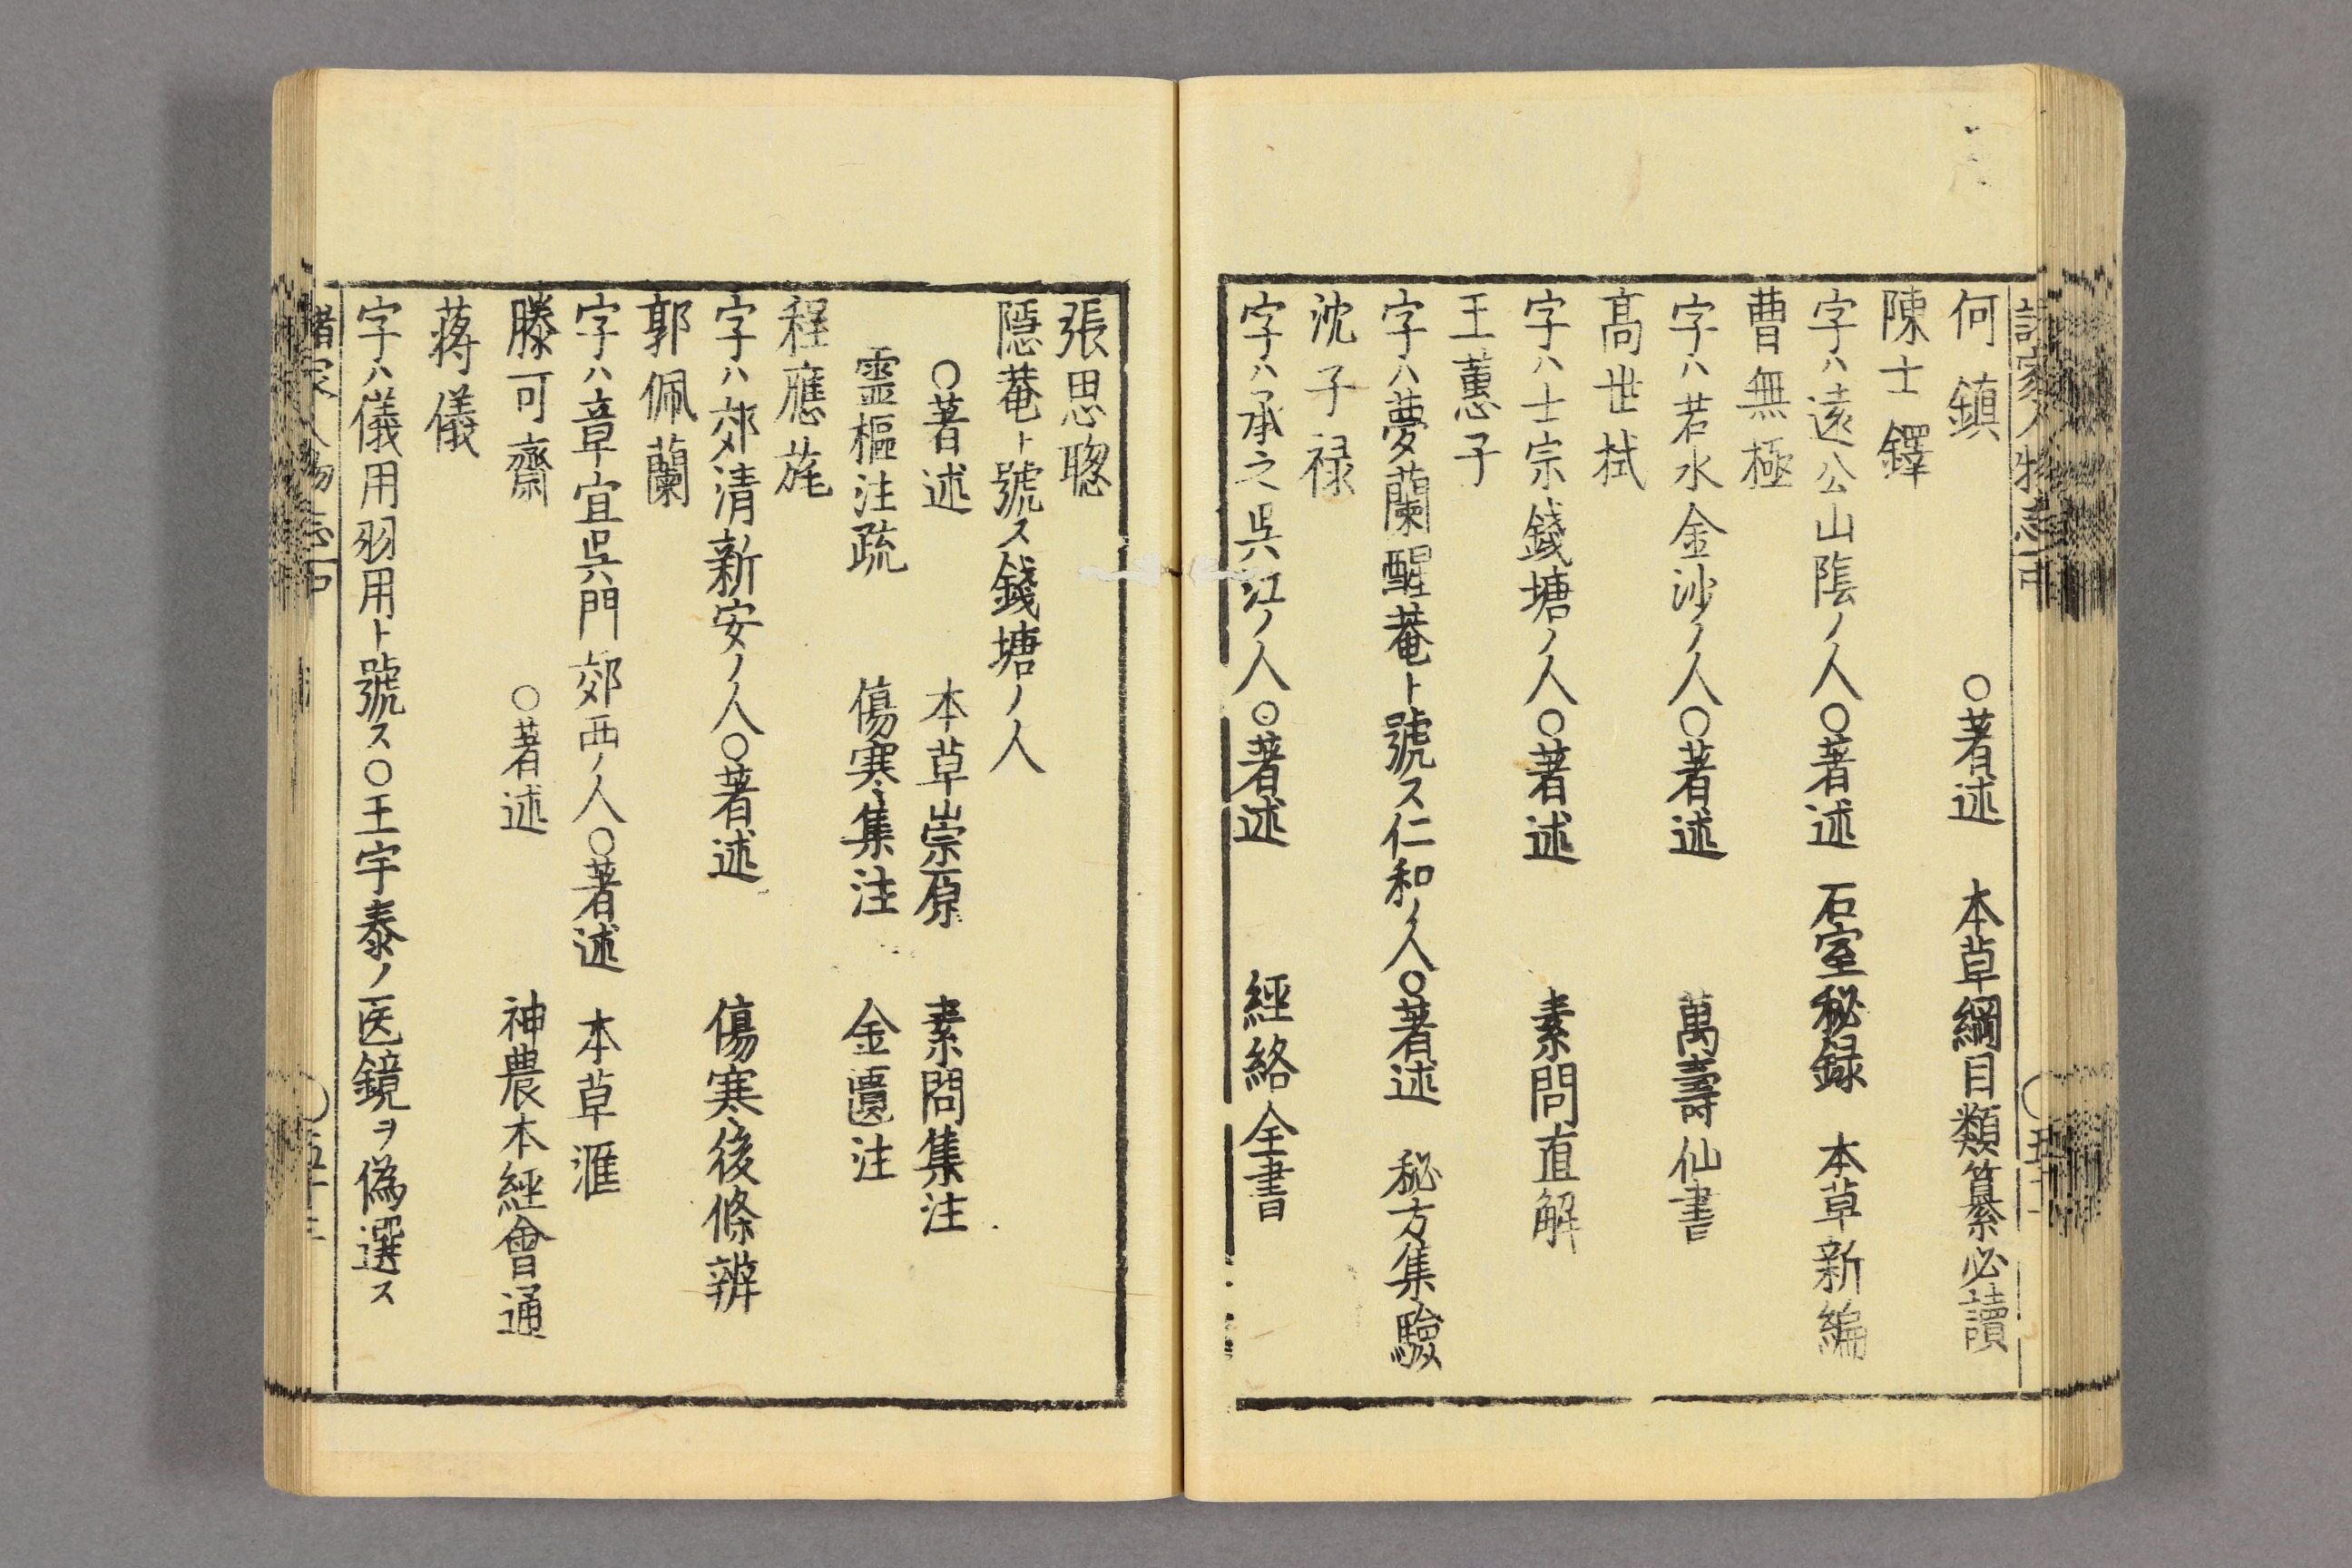 何鎮
○著述 本草綱目類纂必讀
陳士鐸
字ハ遠公山陰ノ人○著述 石室秘録 本草新編
曹無極
字ハ若水金沙ノ人○著述 萬壽仙書
髙世栻
字ハ士宗錢塘ノ人○著述 素問直解
王蕙子
字ハ夢蘭醒菴ト號ス仁和ノ人○著述 秘方集驗
沈子禄
字ハ承之呉江ノ人○著述 經絡全書
張思聦
隱菴ト號ス錢塘ノ人
○著述 本草崇原 素問集注
霊樞注疏 傷寒集注 金匱注
程應旄
字ハ郊清新安ノ人○著述 傷寒後條辨
郭佩蘭
字ハ章宜呉門郊西ノ人○著述 本草滙
滕可齋 ○著述 神農本經會通
蒋儀
字ハ儀用羽用ト號ス○王宇泰ノ医鏡ヲ偽選ス